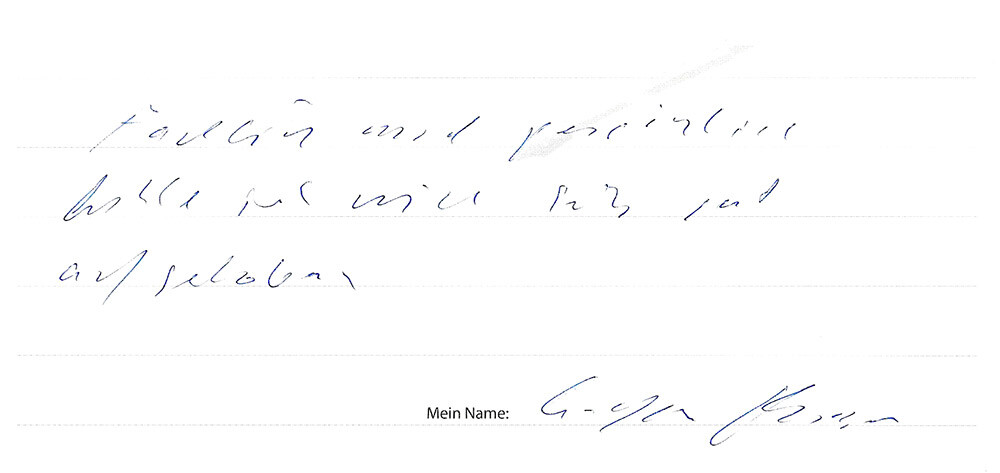 Fachlich und persönlich
fühle ich mich sehr gut
aufgehoben
Mein Name: